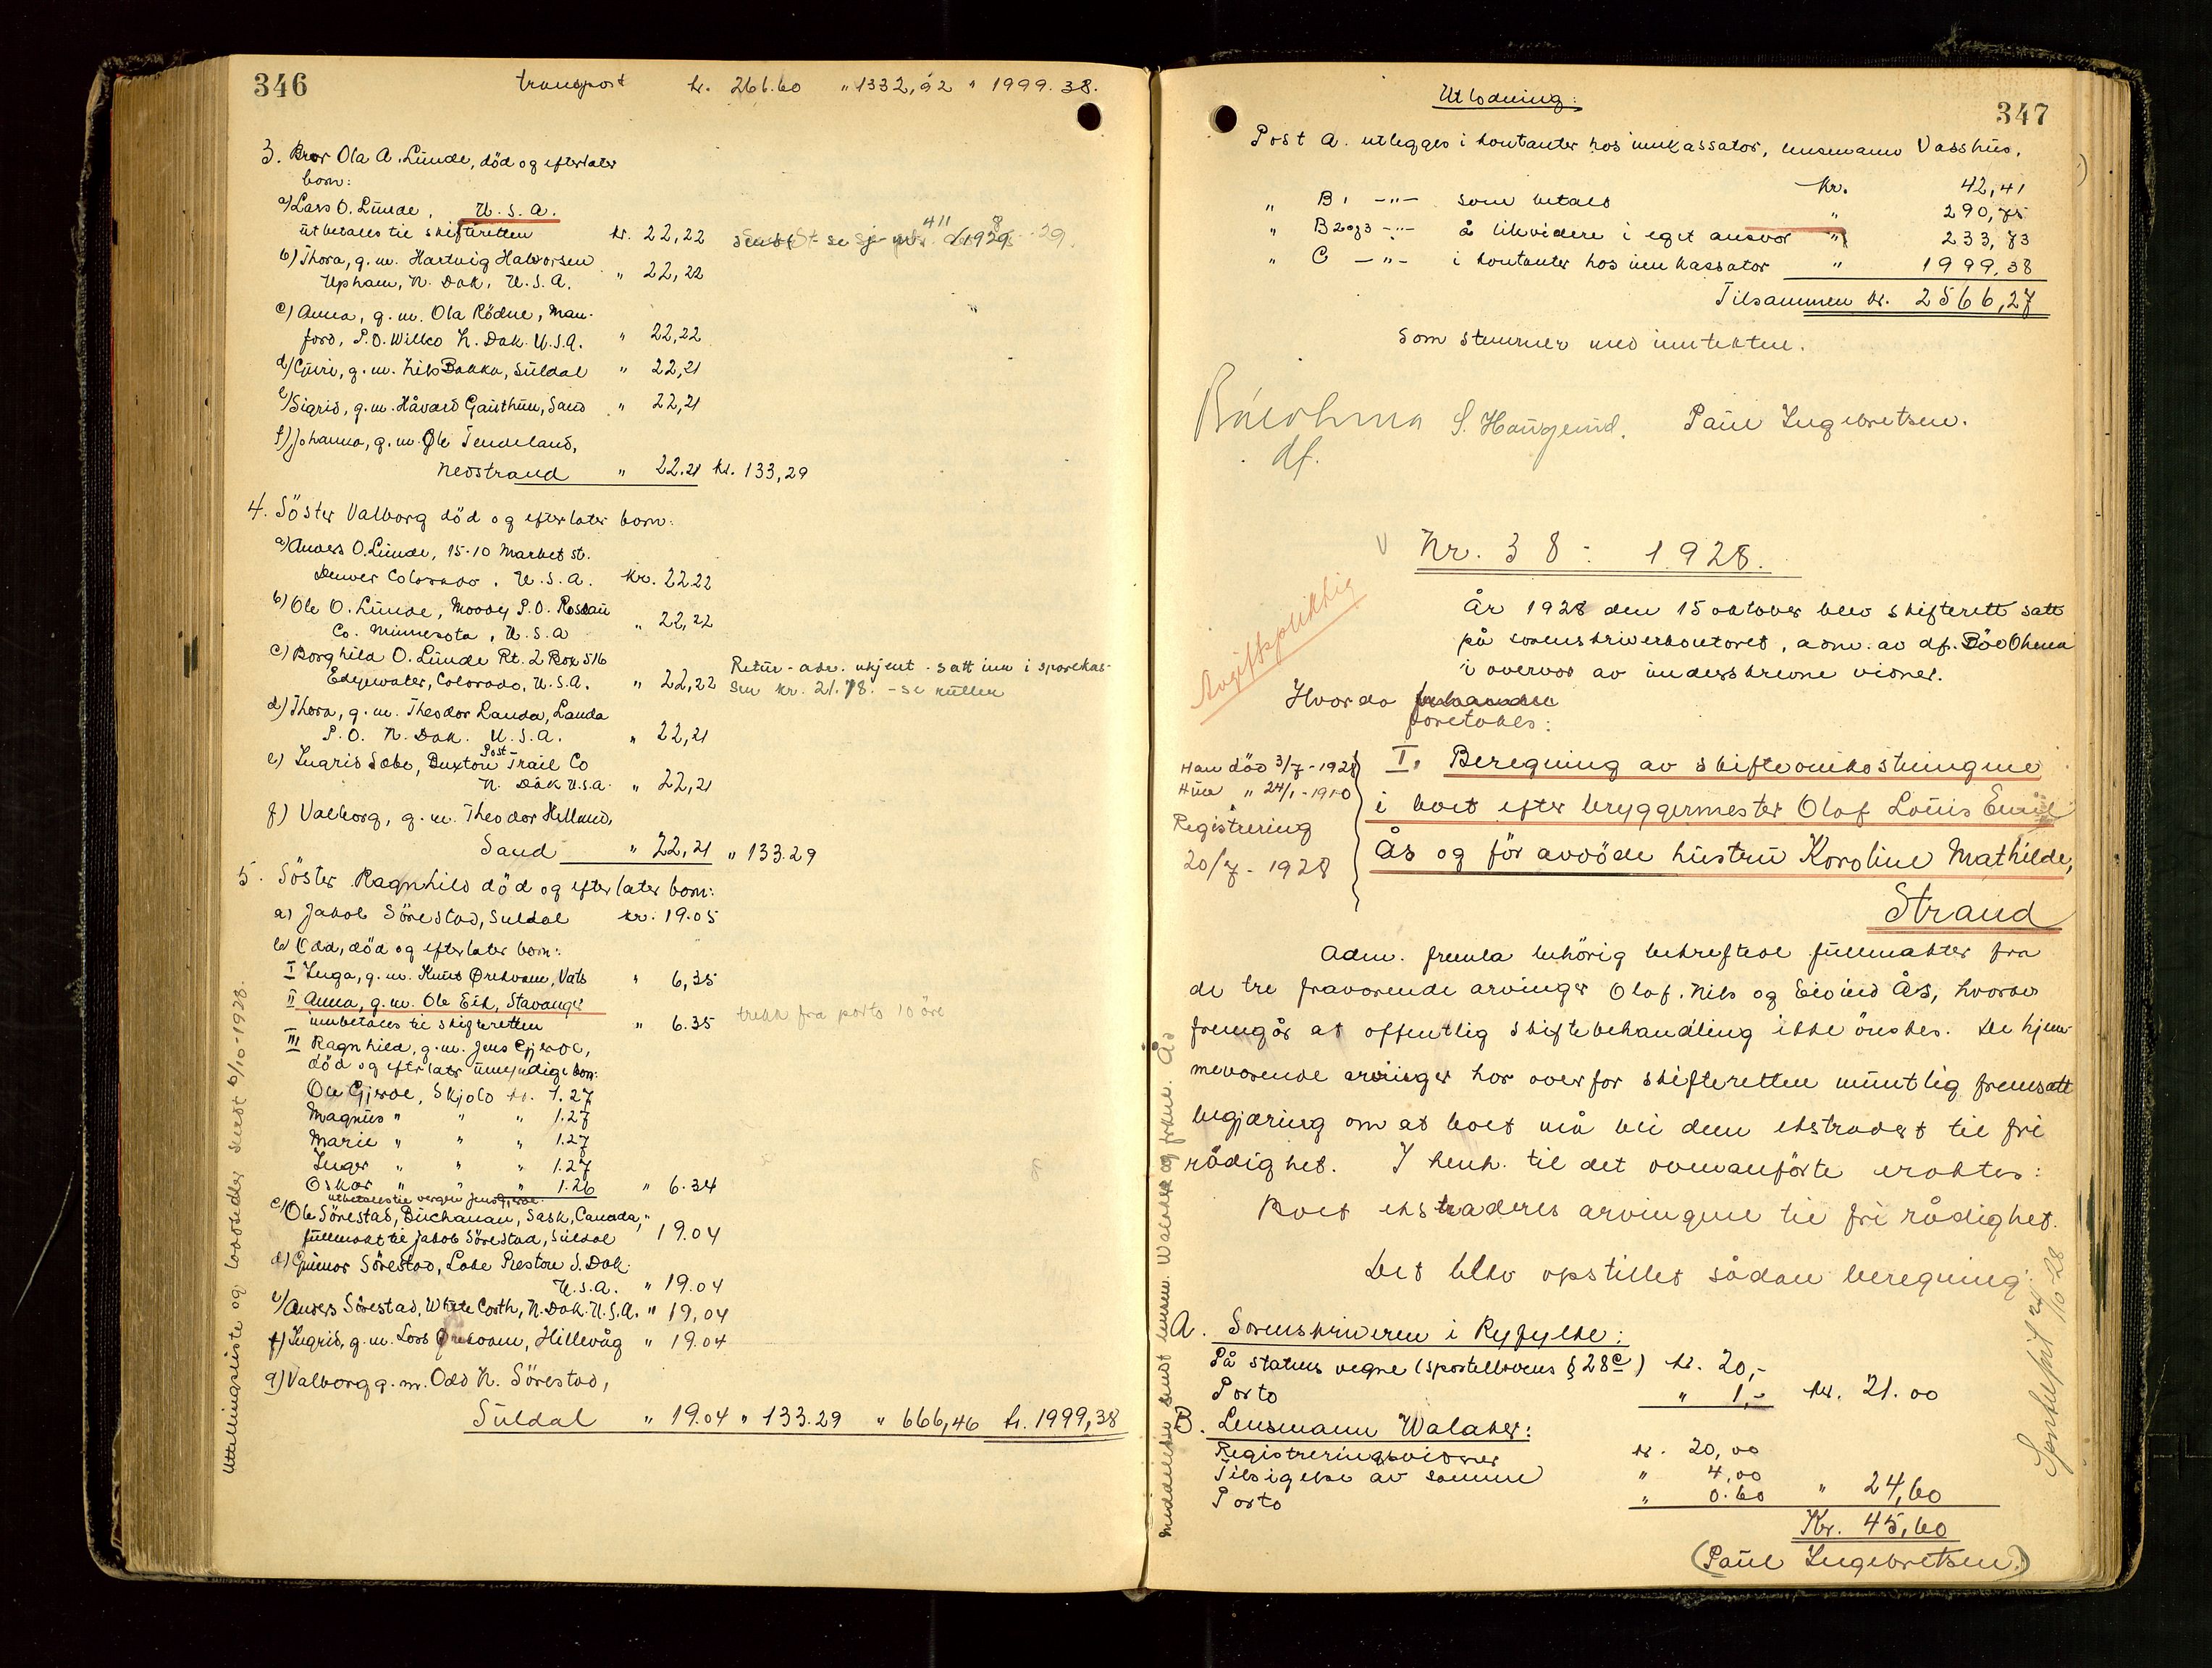 346
transport kr. 266.60 " 1332,92 " 1999.38.
3. Bror Ola A. Lunde, död og efterlater
born:
a) Lars O. Lunde, U.S.A.
utbetales til skifteretten kr. 22,22
b) Thora, g.m. Hartvig Halvorsen
Upham, N. Dak. U.S.A. " 22,22
c) Anna, g.m. Ola Rödne, Man-
ford, P.O. Willco N. Dak. U.S.A. " 22,22
d) Guri, g.m. Nils Bakka, Suldal " 22,21
e) Sigrid, g.m. Håvard Gauthun, Sand " 22,21
f) Johanna, g.m. Ole Tenneland,
Nedstrand " 22.21 kr. 133,29
4. Söster Valborg död og efterlater born:
a) Anders O. Lunde, 15-10 Market st.
Denver Colorado, U.S.A. kr. 22.22
b) Ole O. Lunde, Moody P.O. Roseau
Co. Minnesota, U.S.A " 22,22
c) Borghild O. Lunde Rt. 2 Box 516
Edgewater, Colorado, U.S.A. " 22,22 Retur - adr. ukjent - satt inn i sparekas-
sen kr. 21.78. - se rullen
d) Thora, g.m. Theodor Landa, Landa
P.O. N. Dak. U.S.A. " 22,21
e) Ingrid Sæbø, Buxton Post Trail Co
N. Dak U.S.A. " 22,21
f) Valborg, g.m. Theodor Helland,
Sand " 22,21 " 133.29
5. Söster Ragnhild död og efterlater born:
a) Jakob Sörestad, Suldal kr. 19.05
b) Odd, död og efterlater born:
I Inga, g.m. Knut Ørekvam, Vats " 6,35
II Anna, g.m. Ole Eik, Stavanger
innbetales til skifteretten " 6.35 trekk fra porto 10 öre
III Ragnhild, g.m. Jens Gjerde,
död og efterlater umyndige born:
Ole Gjerde, Skjold kr. 1.27
Magnus " " " 1.27
Marie " " " 1.27
Inger " " " 1.27
Oskar " " " 1.26 " 6.34
utbetales til vergen Jens Gjerde.
c) Ole Sörestad, Buchanan, Sask, Canada,
fullmakt til Jakob Sörestad, Suldal " 19.04
d) Gunnar Sörestad, Lake Preston S. Dak.
U.S.A. " 19.04
e) Anders Sörestad, White Earth, N. Dak. U.S.A. " 19,04
f) Ingrid, g.m. Lars Ørekvam, Hillevåg " 19.04
g) Valborg g.m. Odd N. Sörestad,
Suldal " 19.04 " 133.29 " 666,46 kr. 1999,38
Utlodningsliste og lodsedler sendt 6/10-1928.
347
Utlodning:
Post A. utlegges i kontanter hos innkassator, lensmann Vasshus,
kr. 42,41
" B 1 -"- som betalt " 290,75
" B 2 og 3 -"- å likvidere i eget ansvar " 233,73
" C -"- i kontanter hos innkassator " 1999,38
Tilsammen kr. 2566,27
som stemmer med inntekten.
Böe Ohma S. Haugeland. Paul Ingebretsen.
df.
Nr. 38 - 1928.
Avgiftspliktig
År 1928 den 15 oktober blev skifterett satt
på sorenskriverkontoret, adm. av df. Böe Ohma
i overvær av underskrevne vidner.
Hvorda
foretokes:
Han död 3/7-1928
Hun " 24/1-1910
Registrering
20/7-1928
I. Beregning av skifteomkostningene
i boet efter bryggermester Olaf Louis Emil
Ås og för avdöde hustru Karoline Mathilde,
Strand
Adm. fremla behörig bekreftede fullmakter fra
de tre fraværende arvinger Olaf, Nils og Eivind Ås, hvorav
fremgår at offentlig skiftebehandling ikke önskes. De hjem-
meværende arvinger har overfor skifteretten muntlig fremsatt
begjæring om at boet må bli dem ekstradert til fri
rådighet. I henh. til det ovenanförte eraktes:
Boet ekstraderes arvingene til fri rådighet.
Det blev opstillet sådan beregning:
A. Sorenskriveren i Ryfylke:
På statens vegne (sportellovens § 28c) kr. 20,-
Porto " 1,- kr. 21.00
B. Lensmann Walaker:
Registreringsvidner kr. 20,00
Tilsigelse av samme " 4,00
Porto " 0.60 " 24,60
Kr. 45,60
(Paul Ingebretsen.)